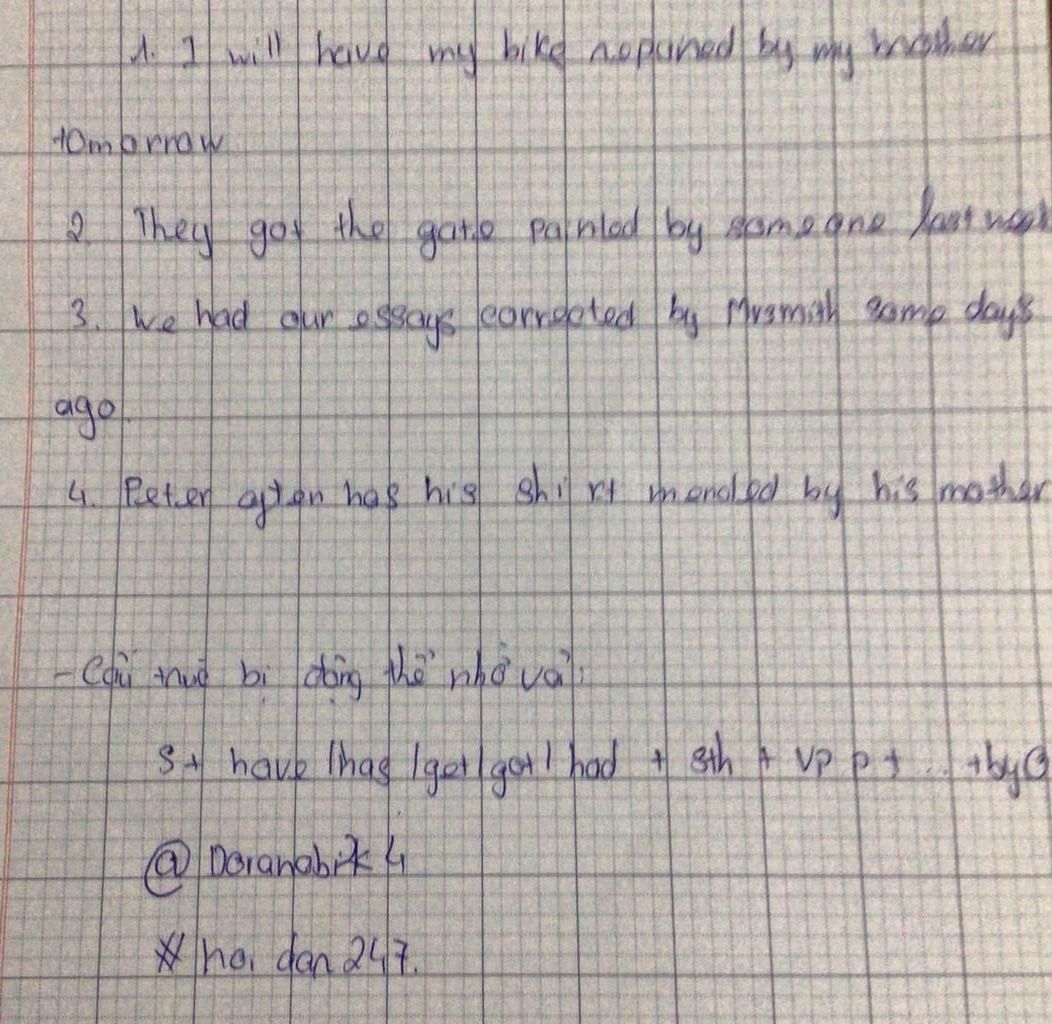 1. I will have my bike repaired by my brother
tomorrow
2. They got the gate painted by someone last week
3. We had our essays corrected by Mrsmith some days
ago.
4. Peter often has his shirt mended by his mother
- Cấu trúc bị động thể nhờ vả:
S + have / has / get / got / had + sth + Vpp + ... + by O
@ Doranobik 4
# hoi dan 247.